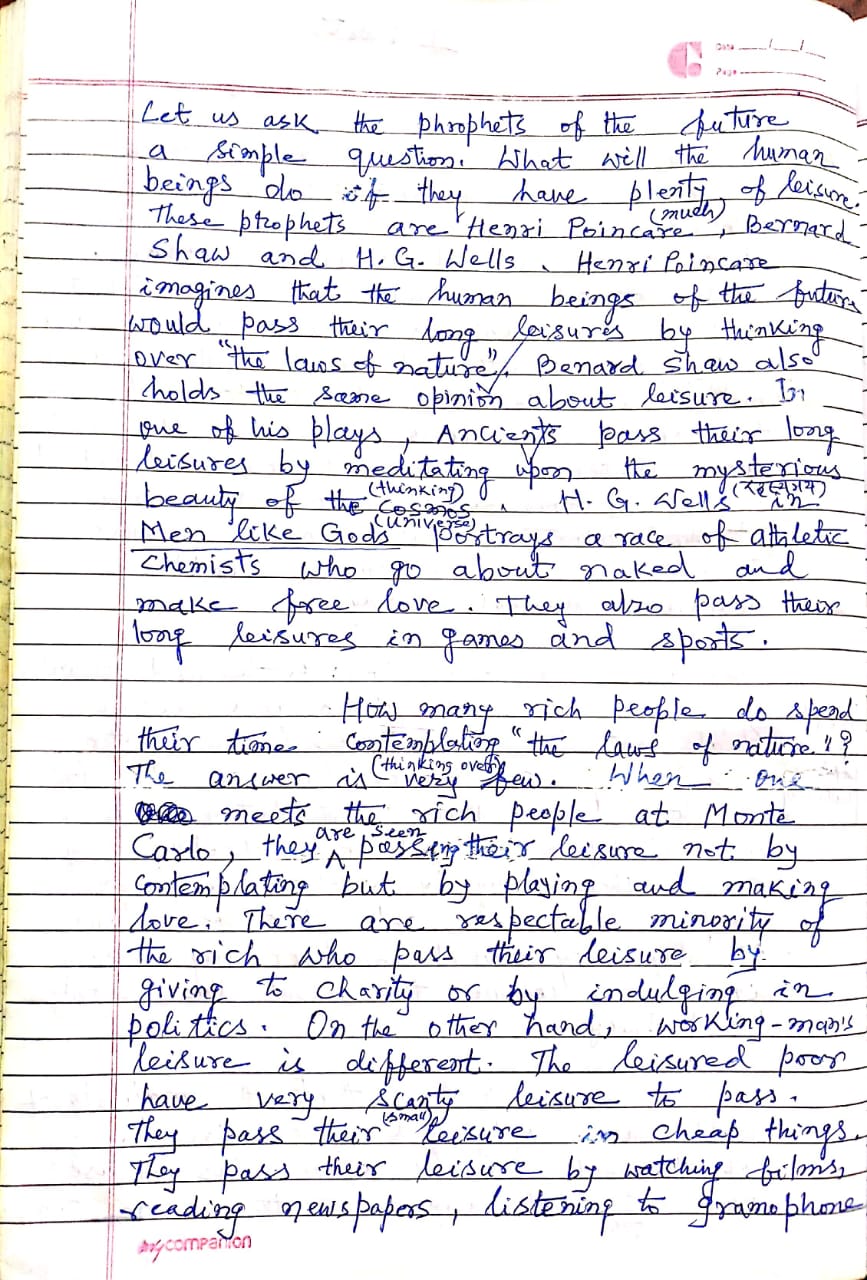 Date ___/___/___
Page
Let us ask the phrophets of the future
a simple question. What will the human
beings do if they have plenty of leisure.
(much)
These prophets are Henri Poincare, Bernard
Shaw and H. G. Wells. Henri Poincare
imagines that the human beings of the future
would pass their long leisures by thinking
over "the laws of nature". Benard Shaw also
holds the same opinion about leisure. In
one of his plays, Ancients pass their long
leisures by meditating upon the mysterious
(thinking) (रहस्यमय)
beauty of the cosmos. H. G. Wells in
(universe)
Men like Gods portrays a race of athletic
Chemists who go about naked and
make free love. They also pass their
long leisures in games and sports.
How many rich people do spend
their time contemplating "the laws of nature"?
(thinking over)
The answer is very few. When one
meets the rich people at Monte
are seen
Carlo, they ^ passing their leisure not by
contemplating but by playing and making
love. There are respectable minority of
the rich who pass their leisure by
giving to charity or by indulging in
politics. On the other hand, working-man's
leisure is different. The leisured poor
have very scanty leisure to pass.
(small)
They pass their leisure in cheap things.
They pass their leisure by watching films,
reading newspapers, listening to gramophone
my companion